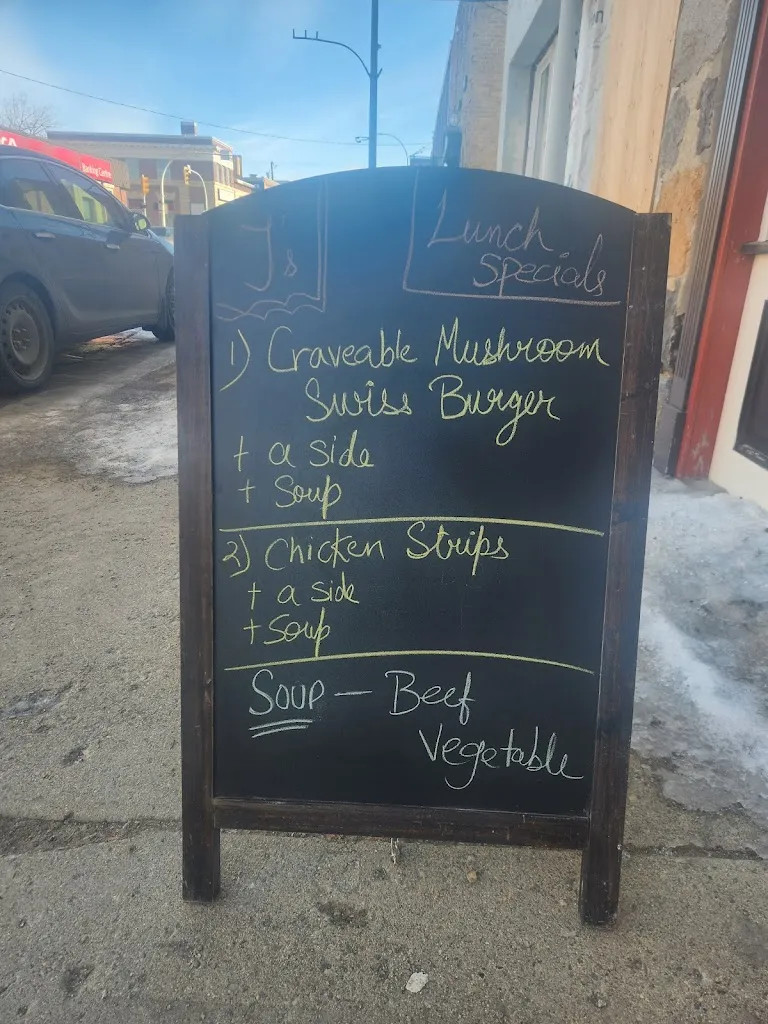 Banking Centre
J's
Lunch
Specials
1) Craveable Mushroom
Swiss Burger
+ a side
+ Soup
2) Chicken Strips
+ a side
+ Soup
SOUP — Beef
Vegetable